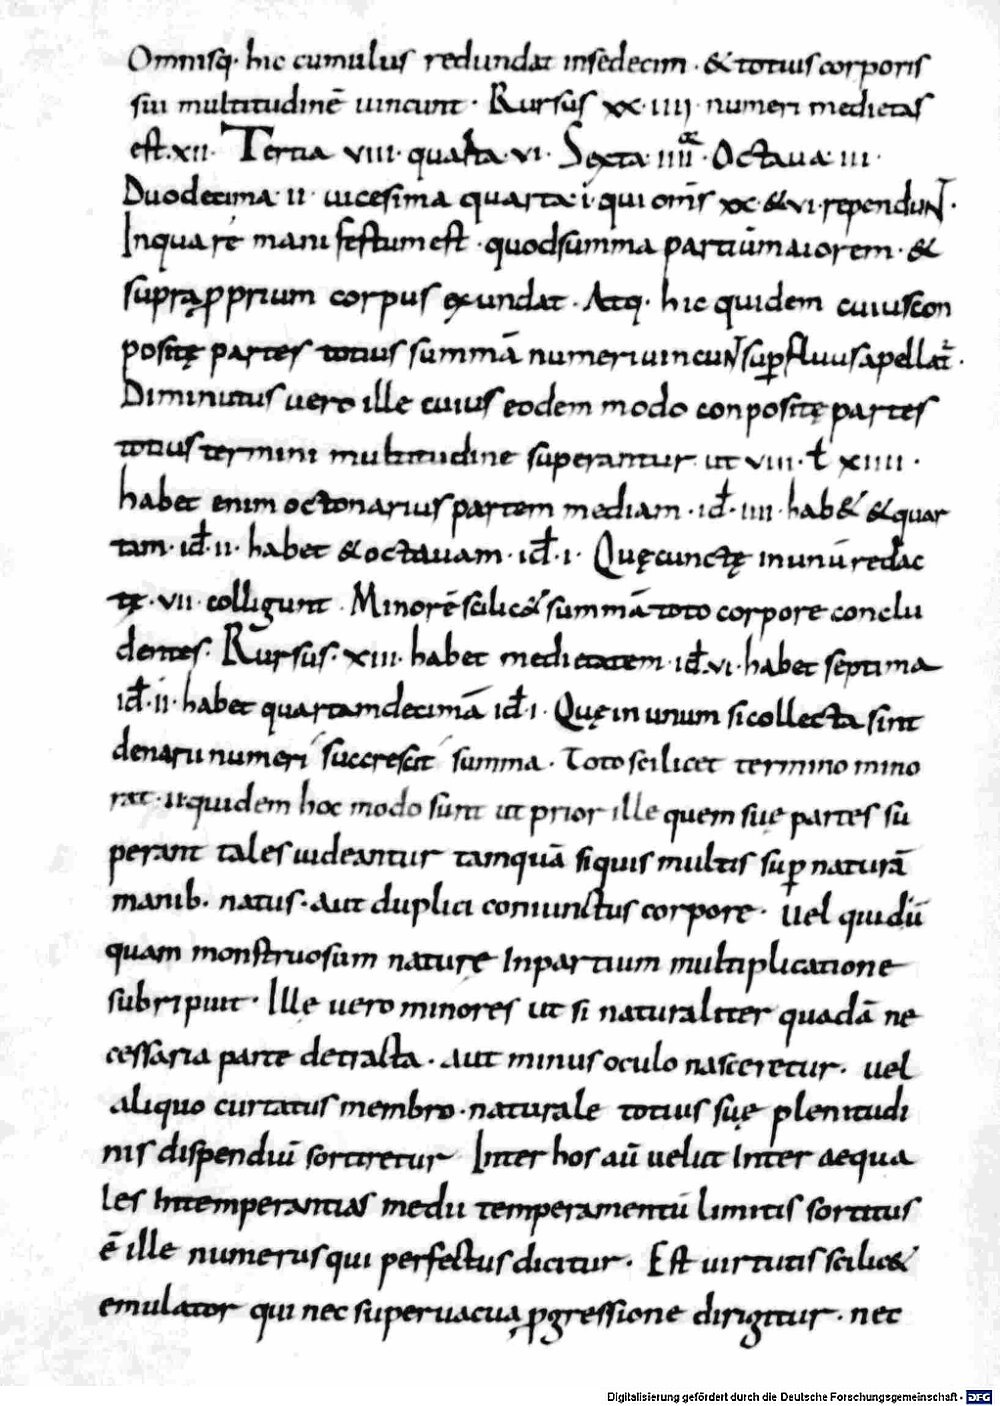 Omnisq· hic cumulus redundat insedecim · & totius corporis
sui multitudinē uincunt · Rursus xx·iiij· numeri medietas
est·xii· Tertia viii· quarta·vi· Sexta iiii · Octaua·iii·
Duodecima·ii· uicesima quarta·i·qui om̄s xx·&vi·rependuNT·
Inqua re manifestum est · quodsumma partiūmaiorem · &
suprap̱prium corpus exundat · Atq· hic quidem cuiuscon
positę partes totius summā numeri uincuNT sup̱fluus apellat̄·
Diminutus uero ille cuius eodem modo conpositę partes
totius termini multitudine superantur ut viii· ł xiiii·
habet enim octonarius partem mediam · id̄·iiii·hab& &quar
tam·id̄·ii· habet &octauam·id̄·i· Quęcunctę inunū redac
tę·vii·colligunt · Minorē scilic& summā toto corpore conclu
dentes· Rursus·xiiii·habet medietatem·id̄·vi·habet septima
id̄·ii·habet quartamdecimā id̄·i· Quę in unum sicollecta sint
denarii numeri succrescit summa · Toto scilicet termino mino
rat·iiquidem hoc modo sunt ut prior ille quem suę partes su
perant tales uideantur tamquā siquis multis sup̱ naturā
manib· natus·aut duplici coniunctus corpore · Uel quidū
quam monstruosum naturę Inpartium multiplicatione
subripuit · Ille uero minores ut si naturaliter quadā ne
cessaria parte detracta · aut minus oculo nasceretur · uel
aliquo curtatus membro·naturale totius suę plenitudi
nis dispendiū sortiretur Inter hos aū uelut Inter aequa
les Intemperantias medii temperamentū limitis sortitus
ē ille numerus qui perfectus dicitur · Est uirtutis scilic&
emulator qui nec superuacua p̱gressione dirigitur · nec
Digitalisierung gefördert durch die Deutsche Forschungsgemeinschaft - DFG